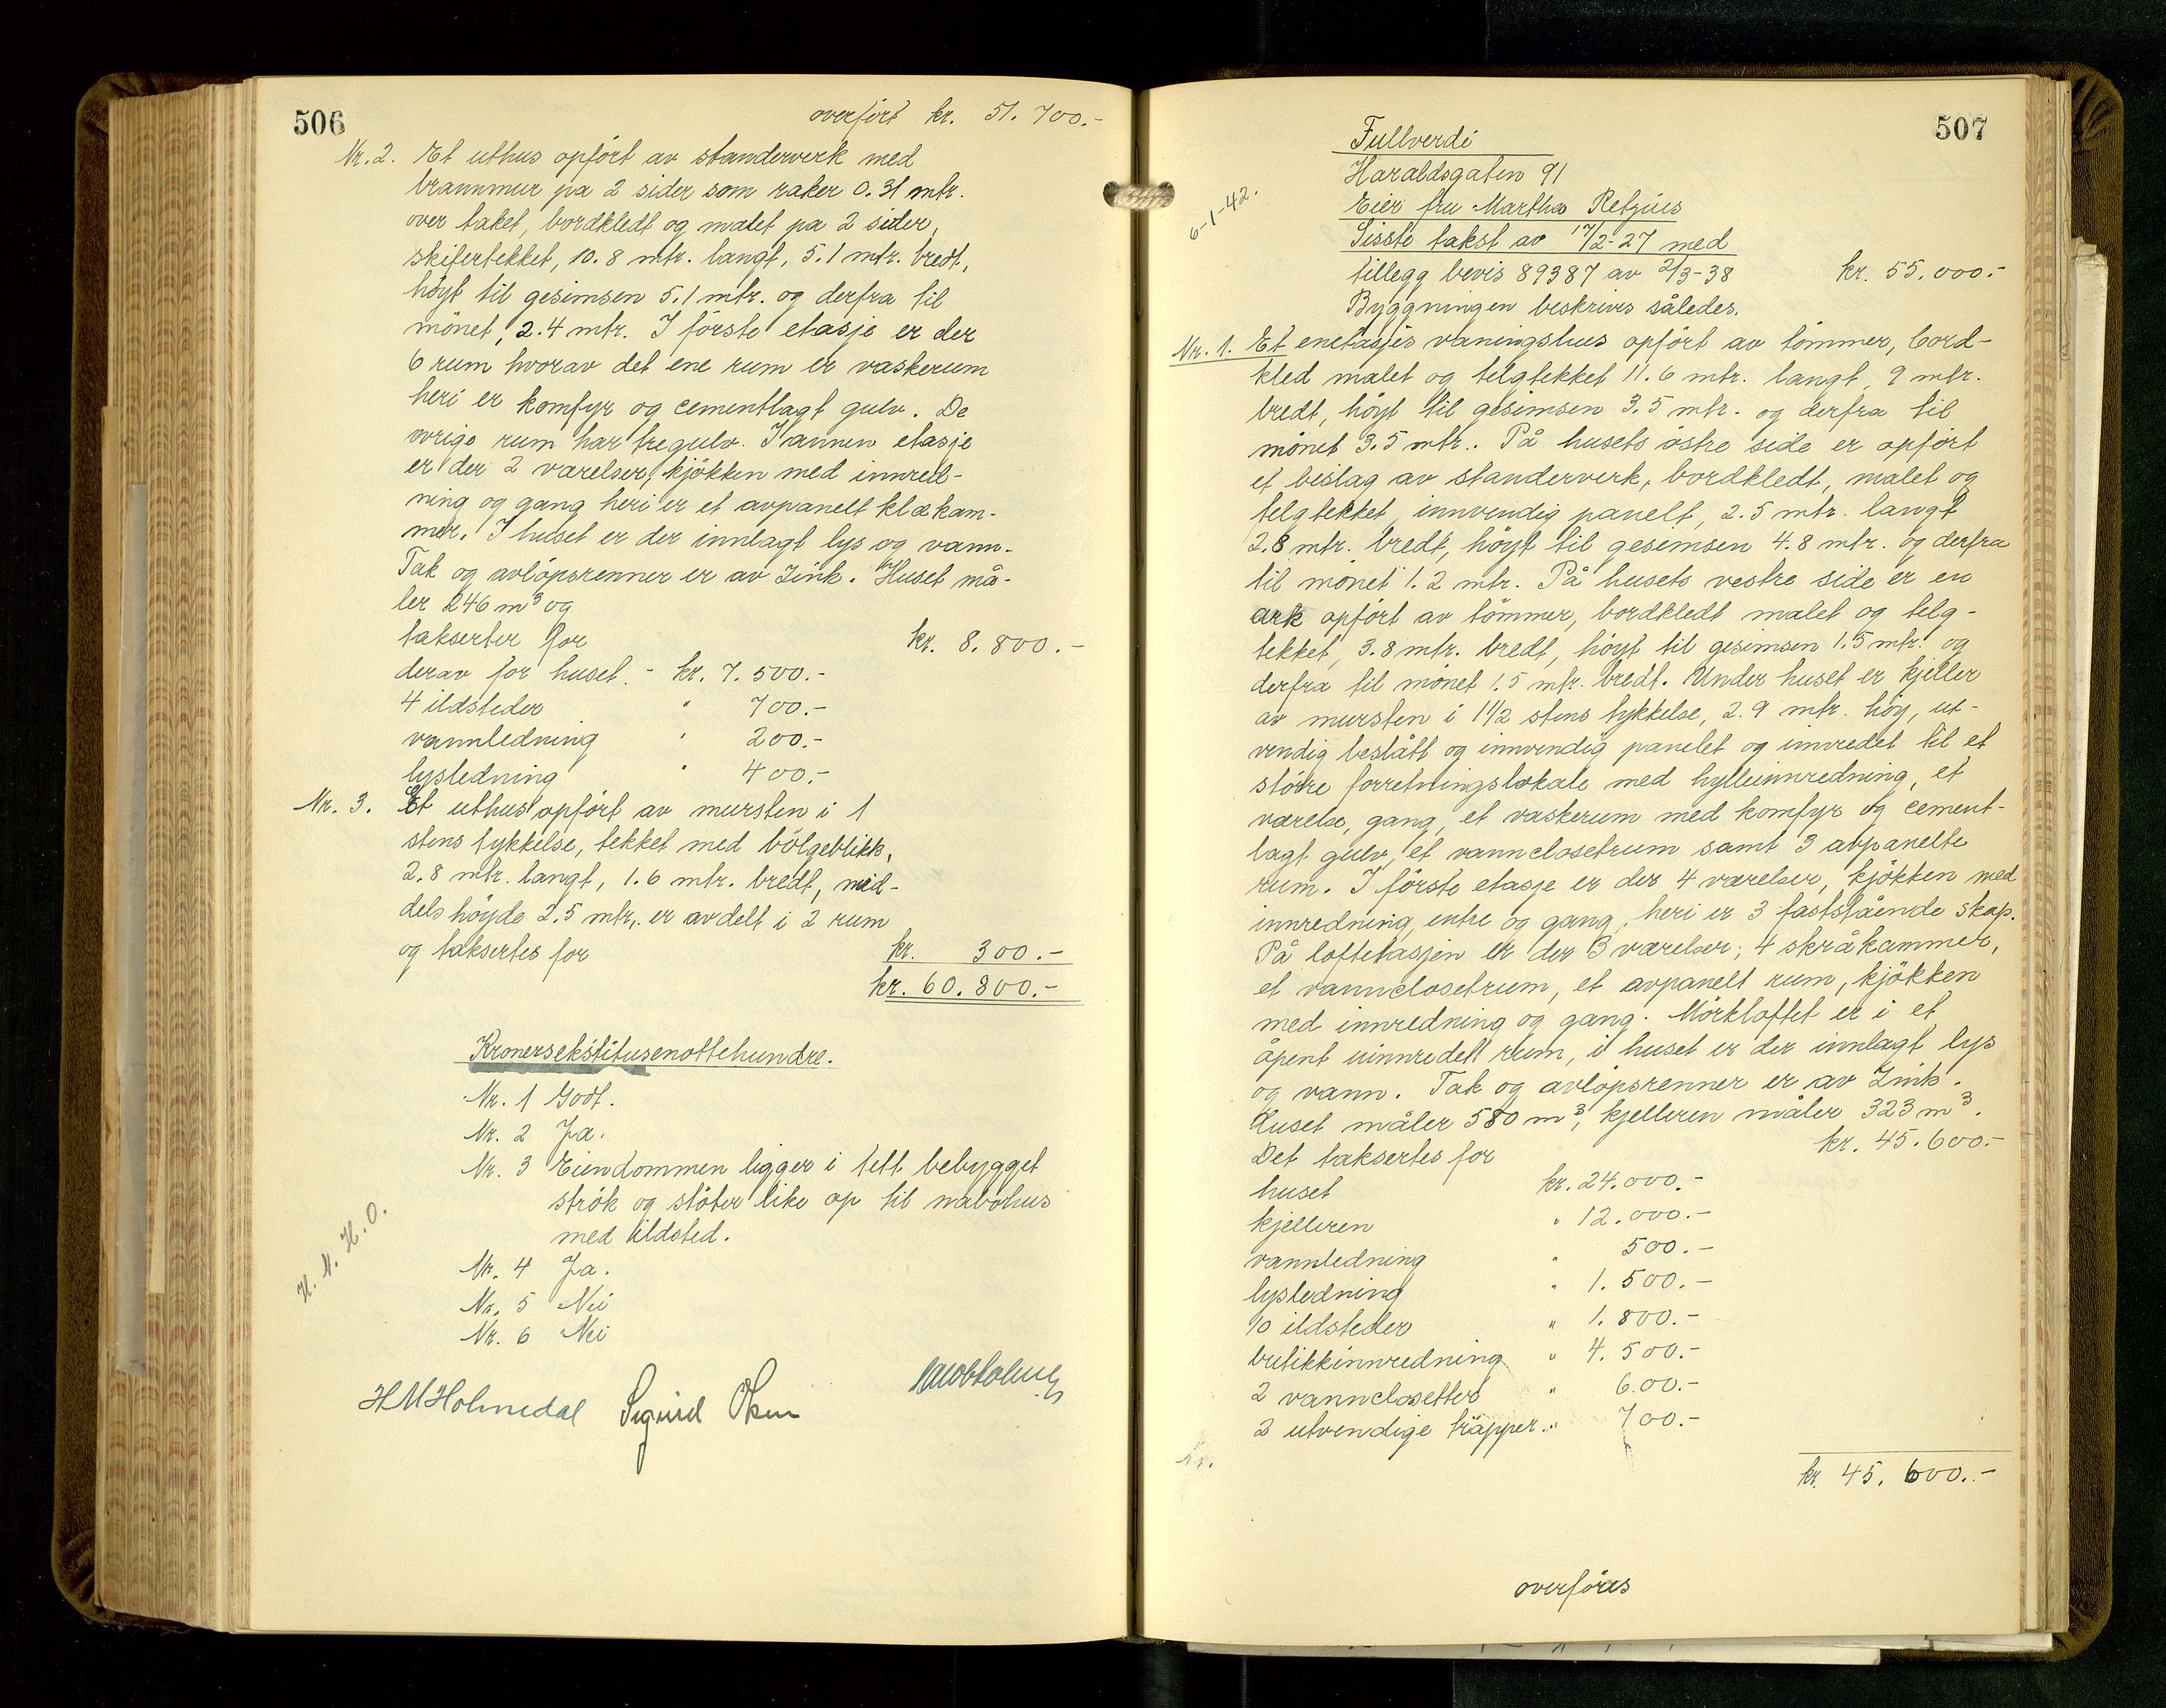 506
overført kr. 51.700.-
Nr. 2. Et uthus opført av standerverk med
brannmur pa 2 sider som raker 0.31 mtr.
over taket, bordkledt og malet pa 2 sider,
skifertekket, 10.8 mtr. langt, 5.1 mtr. bredt,
höyt til gesimsen 5.1 mtr. og derfra til
mönet, 2.4 mtr. I förste etasje er der
6 rum hvorav det ene rum er vaskerum
heri er komfyr og cementlagt gulv. De
övrige rum har tregulv. I annen etasje
er der 2 værelser, kjökken med innred-
ning og gang heri er et avpanelt klækam-
mer. I huset er der innlagt lys og vann.
Tak og avlöpsrenner er av Zink. Huset må-
ler 246 m³ og
takserter for kr. 8.800.-
derav for huset. - kr. 7.500.-
4 ildsteder " 700.-
vannledning " 200.-
lysledning " 400.-
Nr. 3. Et uthus opført av mursten i 1
stens tykkelse, tekket med bölgeblikk,
2.8 mtr. langt, 1.6 mtr. bredt, mid-
dels höyde 2.5 mtr. er avdelt i 2 rum
og taksertes for kr. 300.-
kr. 60.800.-
Kronersekstitusenottehundre.
Nr. 1 Godt.
Nr. 2 Ja.
Nr. 3 Eiendommen ligger i tett bebygget
strök og stöter like op til nabohus
med ildsted.
Nr. 4 Ja.
Nr. 5 Nei
Nr. 6 Nei
H. M. H. O.
H M Holmedal Sigurd Olsen
507
Fullverdi
Haraldsgaten 91
6-1-42.
Eier fru Martha Retzius
Sisste takst av 17/2-27 med
tillegg bevis 89387 av 2/3-38 kr. 55.000.-
Byggningen beskrives således.
Nr. 1. Et enetasjes våningshus opfört av tömmer, bord-
kled malet og telgtekket 11.6 mtr. langt, 9 mtr.
bredt, höyt til gesimsen 3.5 mtr. og derfra til
mönet 3.5 mtr.. På husets östre side er opfört
et bislag av standerverk, bordkledt, malet og
telgtekket innvendig panelt, 2.5 mtr. langt
2.8 mtr. bredt, höyt til gesimsen 4.8 mtr. og derfra
til mönet 1.2 mtr. På husets vestre side er en
ark opfört av tömmer, bordkledt malet og telg-
tekket, 3.8 mtr. bredt, höyt til gesimsen 1.5 mtr. og
derfra til mönet 1.5 mtr. bredt. Under huset er kjeller
av mursten i 1 1/2 stens tykkelse, 2.9 mtr. höy, ut-
vendig beslått og innvendig panelet og innredet til et
större forretningslokale med hylleinnredning, et
værelse, gang, et vaskerum med komfyr og cement-
lagt gulv, et vannclosetrum samt 3 avpanelte
rum. I förste etasje er der 4 værelser, kjökken med
innredning, entre og gang, heri er 3 faststående skap.
På loftetasjen er der 3 værelser, 4 skråkammer,
et vannclosetrum, et avpanelt rum, kjökken
med innredning og gang. Mörkloftet er i et
åpent uinnredett rum, i huset er der innlagt lys
og vann. Tak og avlöpsrenner er av Zink.
Huset måler 580 m³, kjelleren måler 323 m³.
Det taksertes for kr. 45.600.-
huset kr. 24.000.-
kjelleren " 12.000.-
vannledning " 500.-
lysledning " 1.500.-
10 ildsteder " 1.800.-
butikkinnredning " 4.500.-
2 vannclosetter " 600.-
2 utvendige trapper " 700.-
kr. 45.600.-
overföres